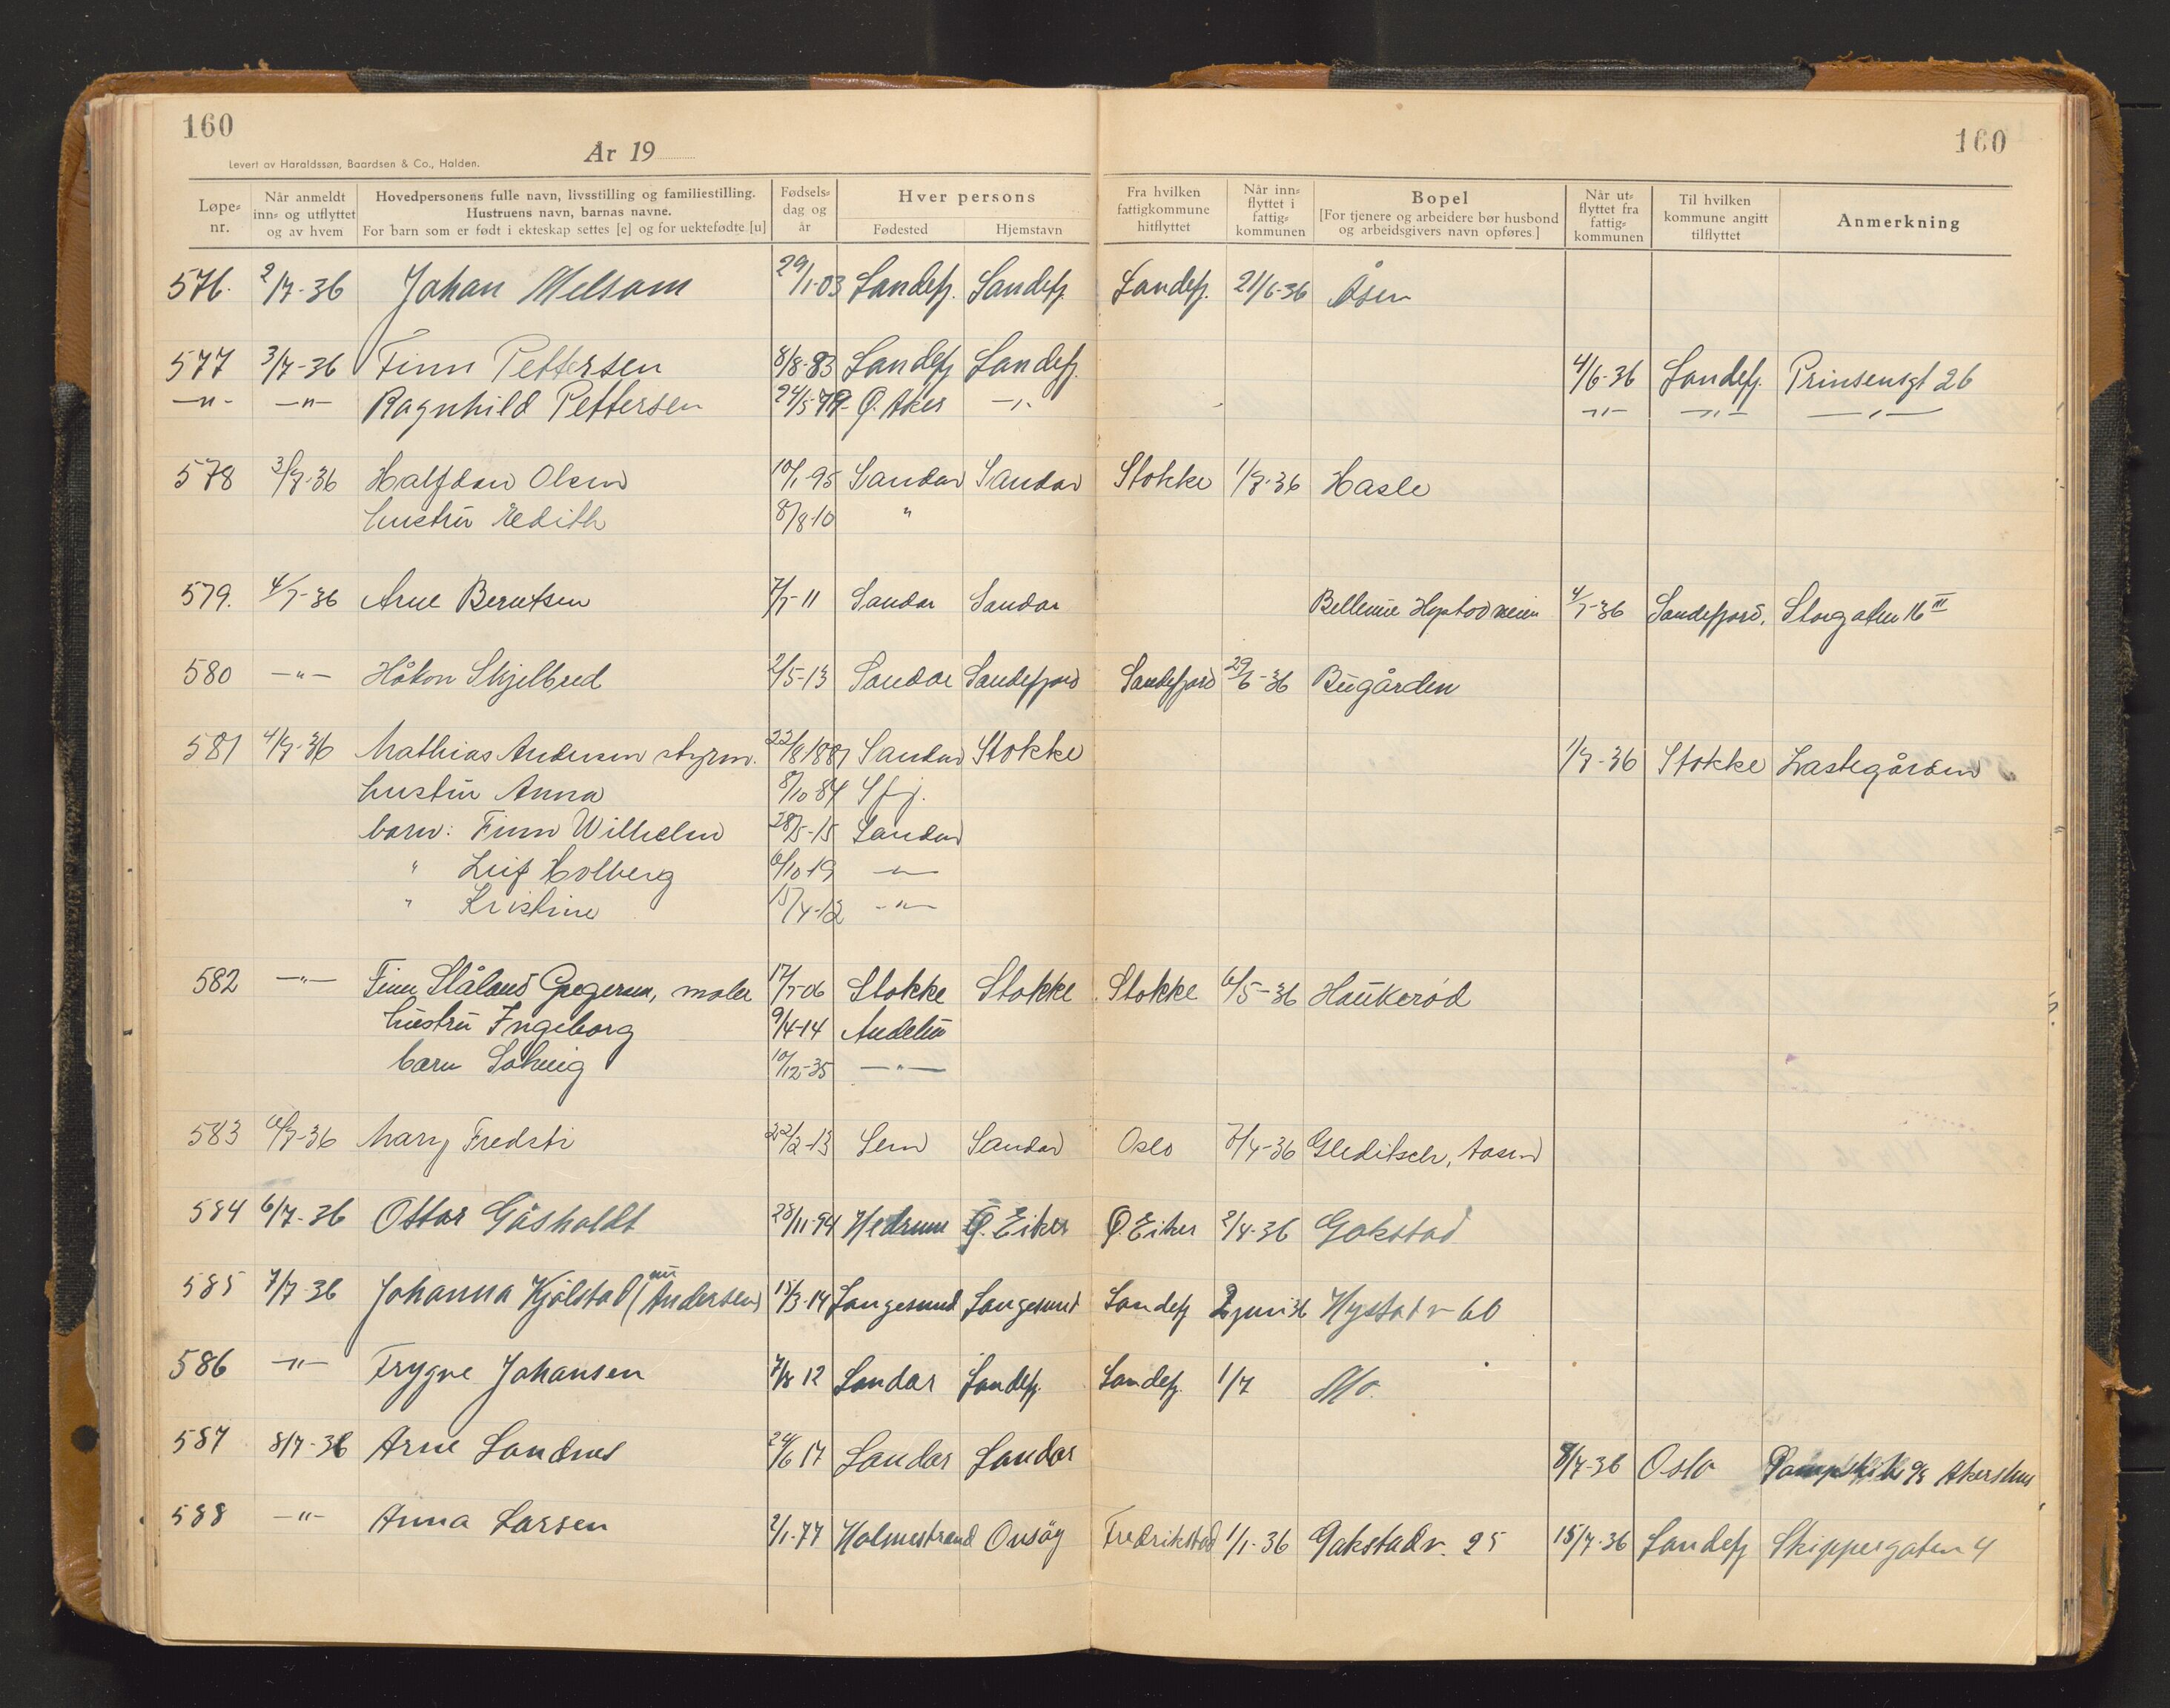 160
Levert av Haraldssøn, Baardsen & Co., Halden.
År 19
160
Løpe-nr.
Når anmeldt inn- og utflyttet og av hvem
Hovedpersonens fulle navn, livsstilling og familiestilling. Hustruens navn, barnas navne. For barn som er født i ekteskap settes [e] og for uektefødte [u]
Fødsels-dag og år
Hver persons
Fødested
Hjemstavn
Fra hvilken fattigkommune hitflyttet
Når inn-flyttet i fattig-kommunen
Bopel
[For tjenere og arbeidere bør husbond og arbeidsgivers navn opføres.]
Når ut-flyttet fra fattig-kommunen
Til hvilken kommune angitt tilflyttet
Anmerkning
576. 2/7-36 Johan Melsom 29/1-03 Sandefj. Sandefj. Sandefj. 21/6-36 Åsen
577 3/7-36 Finn Pettersen 8/8-83 Sandefj Sandefj. 4/6-36 Sandefj. Prinsensgt 26
—"— —"— Ragnhild Pettersen 24/5-79 Ø. Aker —"— —"— —"— —"—
578 3/7-36 Halfdan Olsen 10/1-95 Sandar Sandar Stokke 1/7-36 Hasle
hustru Edith 8/8-10 "
579. 4/7-36 Arne Berntsen 7/7-11 Sandar Sandar Bellevue Hystadveien 4/7-36 Sandefjord, Storgaten 16 III
580 —"— Håkon Skjelbred 2/5-13 Sandar Sandefjord Sandefjord 29/6-36 Bugården
581 4/7-36 Mathias Andersen styrm. 22/8 1881 Sandar Stokke 1/7-36 Stokke
hustru Anna 8/10-84 Sfj.
barn: Finn Wilhelm 28/5-15 Sandar
" Leif Holberg 6/10-19 —"—
" Kristine 15/4-12 —"—
582 —"— Finn Ståland Gregersen, maler 17/7-06 Stokke Stokke Stokke 6/5-36 Haukerød
hustru Ingeborg 9/4-14 Andebu
barn Solveig 10/12-35 —"—
583 6/7-36 Mary Fredsti 22/2-13 Sem Sandar Oslo 7/4-36 Gleditsch, Aasen
584 6/7-36 Ottar Gåsholdt 28/11-94 Hedrum Ø. Eiker Ø. Eiker 2/4-36 Gokstad
585 7/7-36 Johanna Kjølstad (nu Andersen) 15/3-14 Langesund Langesund Sandefj 2 juni 36 Hystadv 60
586 —"— Trygve Johansen 7/8 12 Sandar Sandefj. Sandefj. 1/7 Mo.
587 8/7-36 Arne Sandnes 24/6 17 Sandar Sandar 8/7-36 Oslo Akershus
588 —"— Anna Larsen 2/1-77 Holmestrand Onsøy Fredrikstad 1/1-36 Gokstadv. 25 15/7-36 Sandefj Skippergaten 4